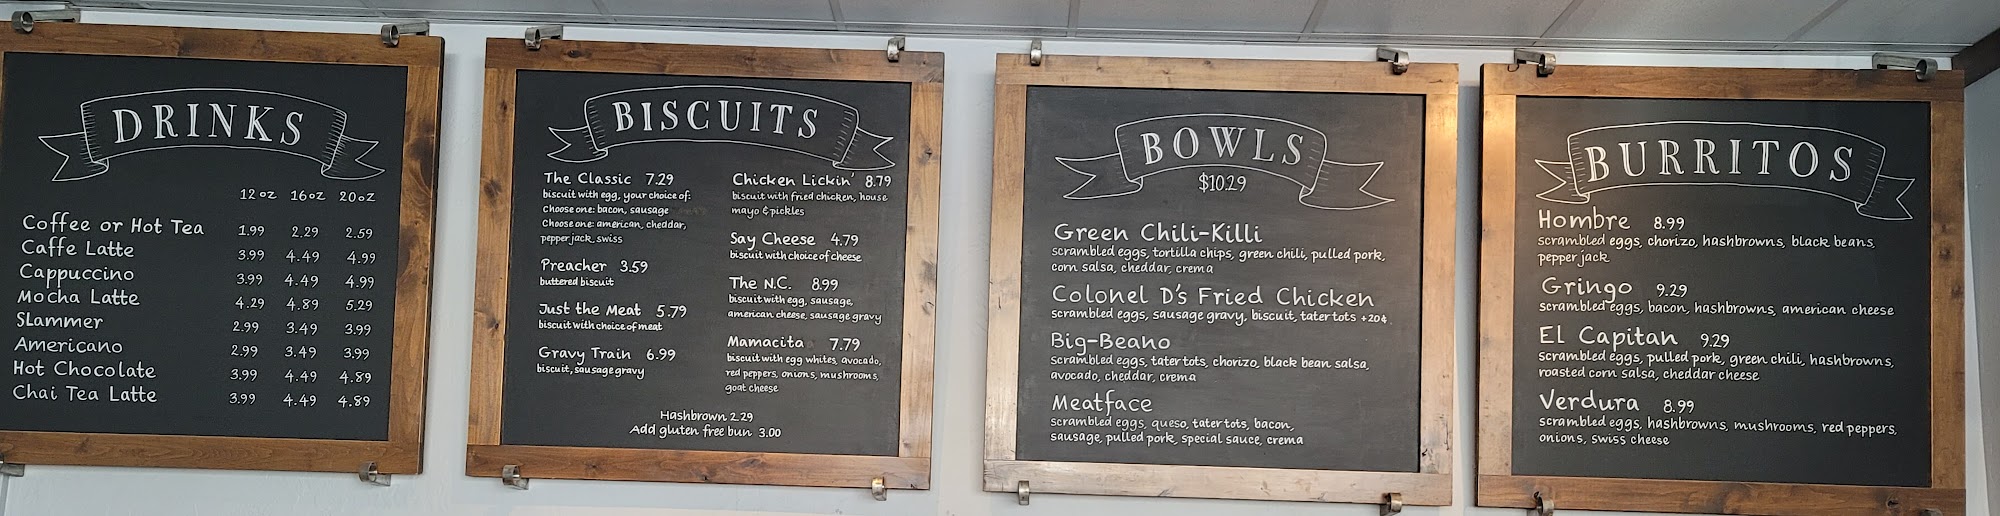 DRINKS
12 oz 16oz 20oz
Coffee or Hot Tea 1.99 2.29 2.59
Caffe Latte 3.99 4.49 4.99
Cappuccino 3.99 4.49 4.99
Mocha Latte 4.29 4.89 5.29
Slammer 2.99 3.49 3.99
Americano 2.99 3.49 3.99
Hot Chocolate 3.99 4.49 4.89
Chai Tea Latte 3.99 4.49 4.89
BISCUITS
The Classic 7.29
biscuit with egg, your choice of:
Choose one: bacon, sausage
Choose one: american, cheddar,
pepper jack, swiss
Preacher 3.59
buttered biscuit
Just the Meat 5.79
biscuit with choice of meat
Gravy Train 6.99
biscuit, sausage gravy
Chicken Lickin' 8.79
biscuit with fried chicken, house
mayo & pickles
Say Cheese 4.79
biscuit with choice of cheese
The N.C. 8.99
biscuit with egg, sausage,
american cheese, sausage gravy
Mamacita 7.79
biscuit with egg whites, avocado,
red peppers, onions, mushrooms,
goat cheese
Hashbrown 2.29
Add gluten free bun 3.00
BOWLS
$10.29
Green Chili-Killi
scrambled eggs, tortilla chips, green chili, pulled pork,
corn salsa, cheddar, crema
Colonel D's Fried Chicken
scrambled eggs, sausage gravy, biscuit, tater tots +20¢
Big-Beano
scrambled eggs, tater tots, chorizo, black bean salsa,
avocado, cheddar, crema
Meatface
scrambled eggs, queso, tater tots, bacon,
sausage, pulled pork, special sauce, crema
BURRITOS
Hombre 8.99
scrambled eggs, chorizo, hashbrowns, black beans,
pepper jack
Gringo 9.29
scrambled eggs, bacon, hashbrowns, american cheese
El Capitan 9.29
scrambled eggs, pulled pork, green chili, hashbrowns,
roasted corn salsa, cheddar cheese
Verdura 8.99
scrambled eggs, hashbrowns, mushrooms, red peppers,
onions, swiss cheese